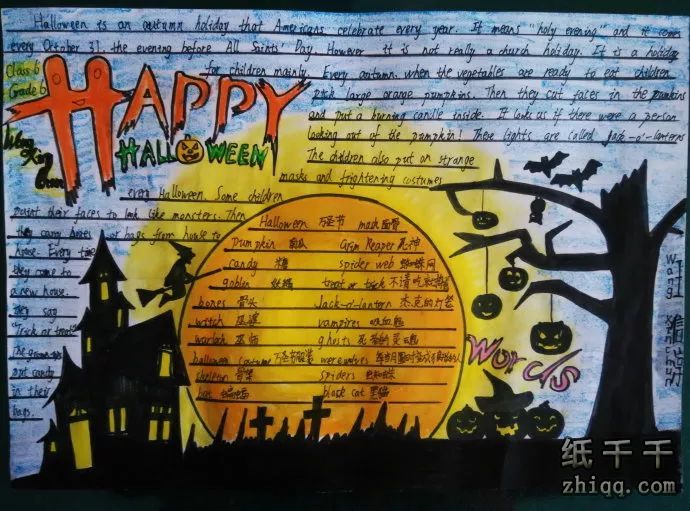 Halloween is an autumn holiday that Americans celebrate every year. It means "holy evening" and it comes
every October 31, the evening before All Saints' Day. However it is not really a church holiday. It is a holiday
for children mainly. Every autumn. when the vegetables are ready to eat children
pick large orange pumpkins. Then they cut faces in the pumkins
and put a burning candle inside. It looks as if there were a person
looking out of the pumpkin! These lights are called Jack-o'-lanterns
The children also put on strange
masks and frightening costumes
every Halloween. Some children
paint their faces to look like monsters. Then
they carry boxes or bags from house to
house. Every time
they come to
a new house.
they say
"Trick or treat!
The
put candy
in their
bags.
Class 6
Grade 6
HAPPY
HALLOWEEN
Halloween 万圣节 mask 面骨
pumpkin 南瓜 Grim Reaper 死神
candy 糖 spider web 蜘蛛网
goblin 妖精 treat or trick 不请吃就捣蛋
bones 骨头 Jack-o'-lantern 杰克的灯笼
witch 巫婆 vampires 吸血鬼
warlock 巫师 ghosts 死者的灵魂
halloween costume 万圣节服装 werewolves
skeleton 骨架 spiders 蜘蛛
bat 蝙蝠 black cat 黑猫
Words
Wang
纸千千
zhiqq.com